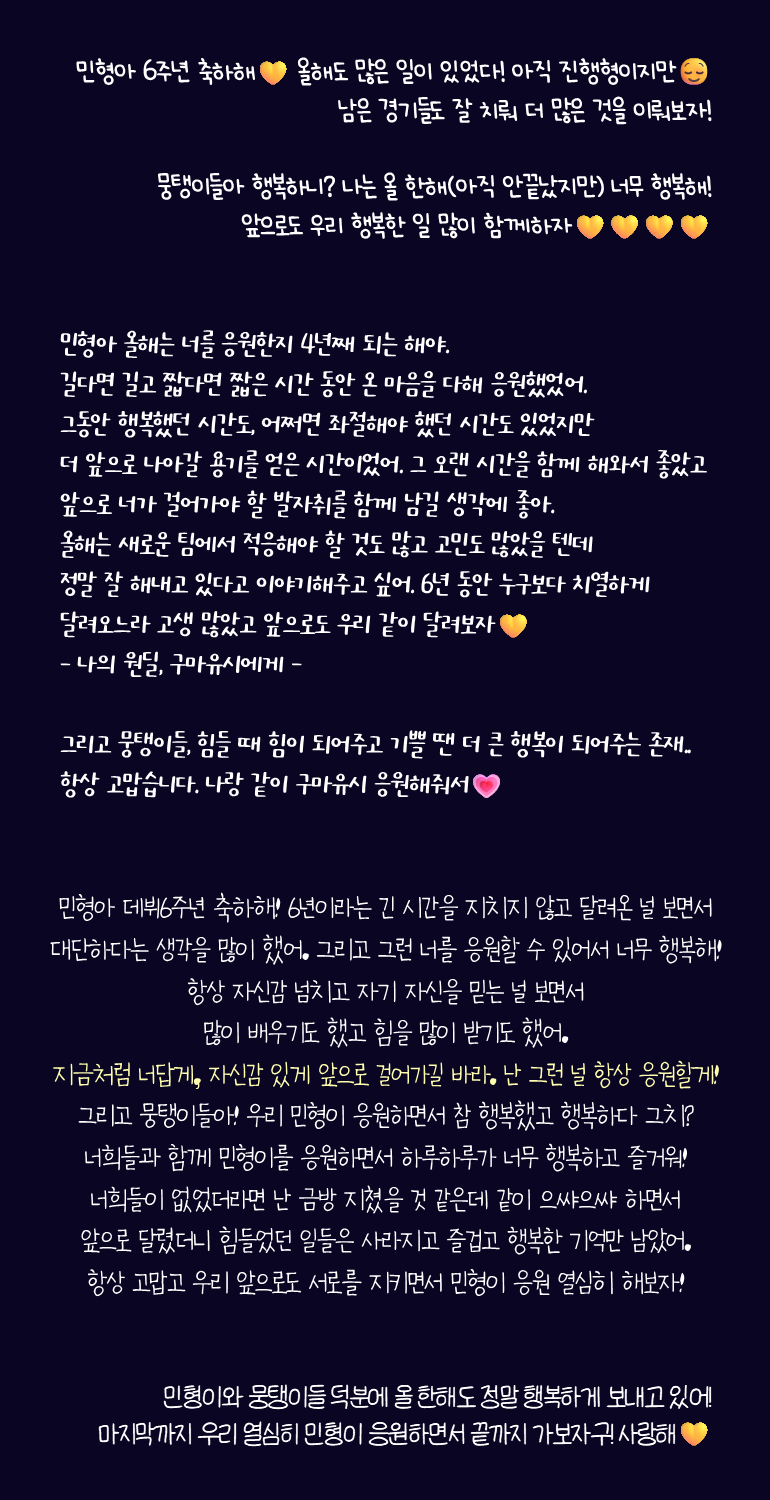 민형아 6주년 축하해🧡 올해도 많은 일이 있었다! 아직 진행형이지만😌
남은 경기들도 잘 치뤄 더 많은 것을 이뤄보자!
뭉탱이들아 행복하니? 나는 올 한해(아직 안끝났지만) 너무 행복해!
앞으로도 우리 행복한 일 많이 함께하자🧡🧡🧡🧡
민형아 올해는 너를 응원한지 4년째 되는 해야.
길다면 길고 짧다면 짧은 시간 동안 온 마음을 다해 응원했었어.
그동안 행복했던 시간도, 어쩌면 좌절해야 했던 시간도 있었지만
더 앞으로 나아갈 용기를 얻은 시간이었어. 그 오랜 시간을 함께 해와서 좋았고
앞으로 너가 걸어가야 할 발자취를 함께 남길 생각에 좋아.
올해는 새로운 팀에서 적응해야 할 것도 많고 고민도 많았을 텐데
정말 잘 해내고 있다고 이야기해주고 싶어. 6년 동안 누구보다 치열하게
달려오느라 고생 많았고 앞으로도 우리 같이 달려보자🧡
- 나의 원딜, 구마유시에게 -
그리고 뭉탱이들, 힘들 때 힘이 되어주고 기쁠 땐 더 큰 행복이 되어주는 존재..
항상 고맙습니다. 나랑 같이 구마유시 응원해줘서💗
민형아 데뷔6주년 축하해! 6년이라는 긴 시간을 지치지 않고 달려온 널 보면서
대단하다는 생각을 많이 했어. 그리고 그런 너를 응원할 수 있어서 너무 행복해!
항상 자신감 넘치고 자기 자신을 믿는 널 보면서
많이 배우기도 했고 힘을 많이 받기도 했어.
지금처럼 너답게, 자신감 있게 앞으로 걸어가길 바라. 난 그런 널 항상 응원할게!
그리고 뭉탱이들아! 우리 민형이 응원하면서 참 행복했고 행복하다 그치?
너희들과 함께 민형이를 응원하면서 하루하루가 너무 행복하고 즐거워!
너희들이 없었더라면 난 금방 지쳤을 것 같은데 같이 으쌰으쌰 하면서
앞으로 달렸더니 힘들었던 일들은 사라지고 즐겁고 행복한 기억만 남았어.
항상 고맙고 우리 앞으로도 서로를 지키면서 민형이 응원 열심히 해보자!
민형이와 뭉탱이들 덕분에 올 한해도 정말 행복하게 보내고 있어!
마지막까지 우리 열심히 민형이 응원하면서 끝까지 가보자구! 사랑해🧡